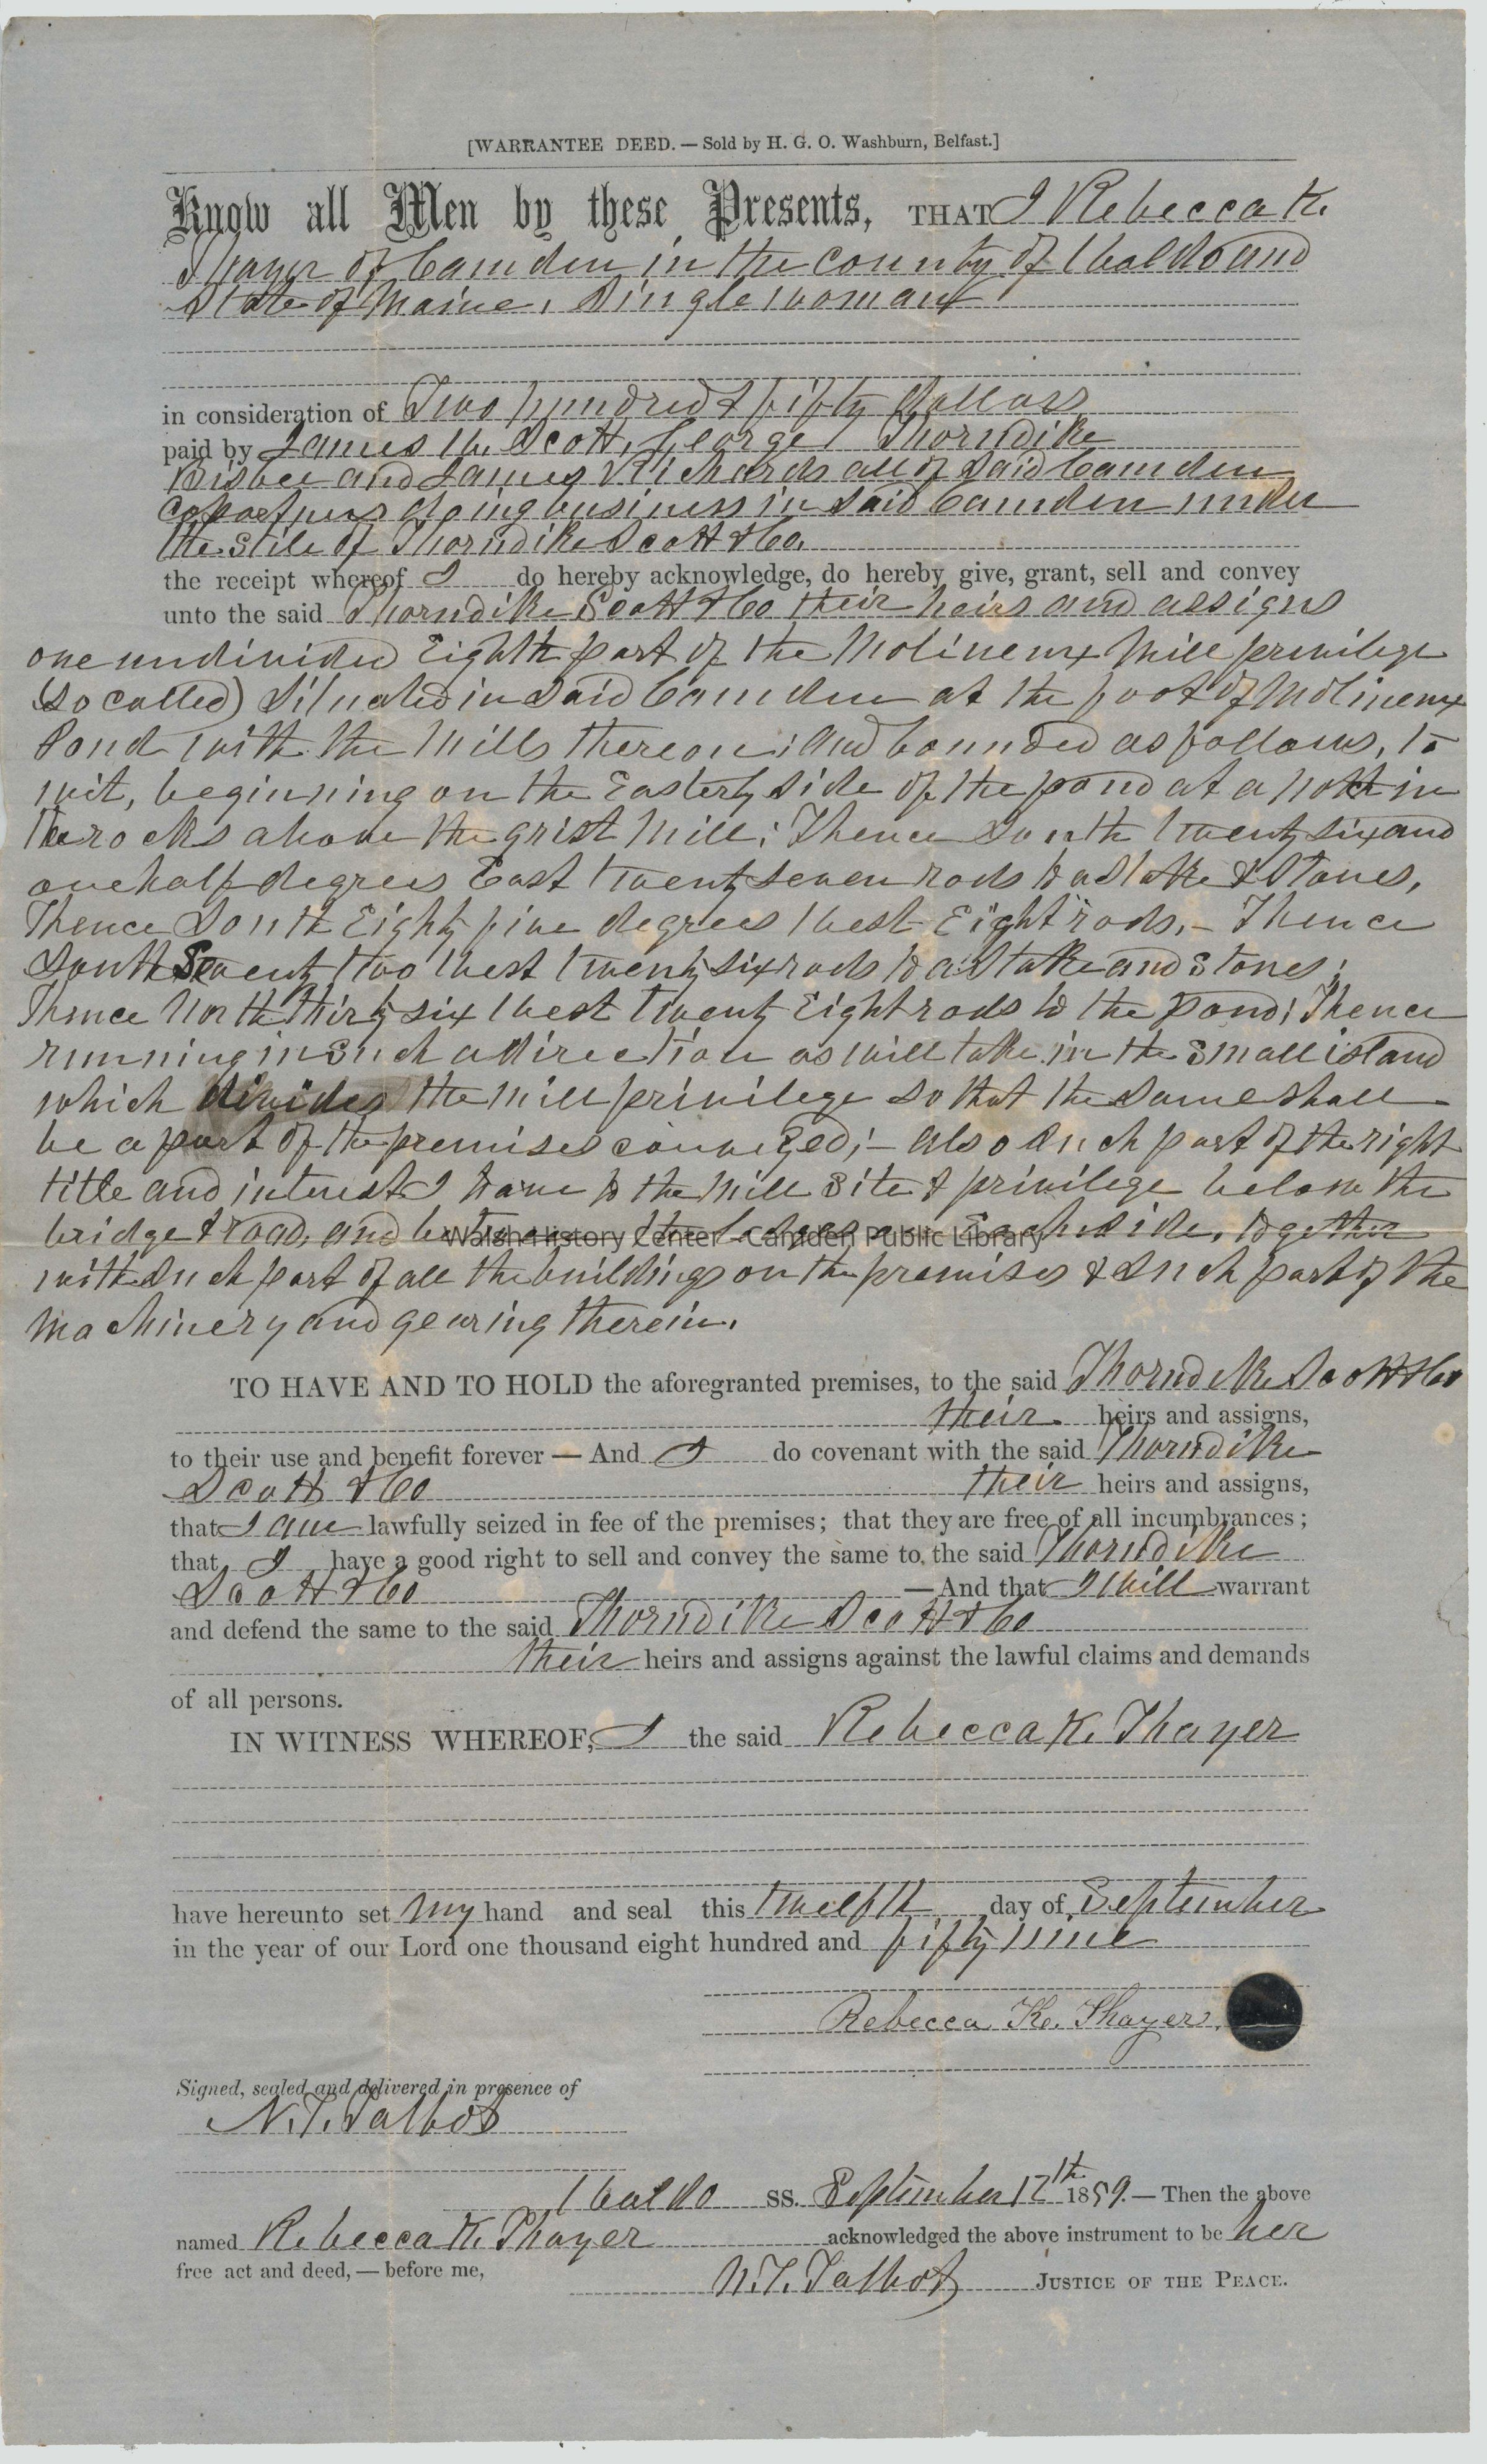 [WARRANTEE DEED. — Sold by H. G. O. Washburn, Belfast.]
Know all Men by these Presents, THAT I Rebecca K.
Thayer of Camden in the county of Waldo and
State of Maine, Single woman
in consideration of Two hundred & fifty dollars
paid by James W. Scott, George Thorndike
Bisbee and James Richards all of said Camden
copartners doing business in said Camden under
the stile of Thorndike Scott & Co.
the receipt whereof I do hereby acknowledge, do hereby give, grant, sell and convey
unto the said Thorndike Scott & Co their heirs and assigns
one undivided Eighth part of the Molineux Mill privilege
(so called) situated in said Camden at the foot of Molineux
Pond with the Mills thereon; and bounded as follows, to
wit, beginning on the Easterly side of the pond at a notch in
the rocks above the grist Mill; Thence South twenty six and
one half degrees East twenty seven rods to a Stake & Stones,
Thence South Eighty five degrees West Eight rods, - Thence
South Seventy two West twenty six rods to a Stake and Stones;
Thence North thirty six West twenty Eight rods to the pond; Thence
running in such a direction as will take in the small island
which divides the Mill privilege so that the same shall
be a part of the premises conveyed; - also such part of the right
title and interest I have to the Mill Site & privilege below the
bridge & road, and between the ledges on Each side, together
with such part of all the buildings on the premises & such part of the
machinery and gearing therein.
TO HAVE AND TO HOLD the aforegranted premises, to the said Thorndike Scott & Co
their heirs and assigns,
to their use and benefit forever — And I do covenant with the said Thorndike
Scott & Co their heirs and assigns,
that I am lawfully seized in fee of the premises; that they are free of all incumbrances;
that I have a good right to sell and convey the same to the said Thorndike
Scott & Co — And that I will warrant
and defend the same to the said Thorndike Scott & Co
their heirs and assigns against the lawful claims and demands
of all persons.
IN WITNESS WHEREOF, I the said Rebecca K. Thayer
have hereunto set my hand and seal this twelfth day of September
in the year of our Lord one thousand eight hundred and fifty nine
Rebecca K. Thayer.
Signed, sealed and delivered in presence of
N. T. Talbot
Waldo ss. September 12th 1859. — Then the above
named Rebecca K. Thayer acknowledged the above instrument to be her
free act and deed, — before me,
N. T. Talbot JUSTICE OF THE PEACE.
Walsh History Center - Camden Public Library